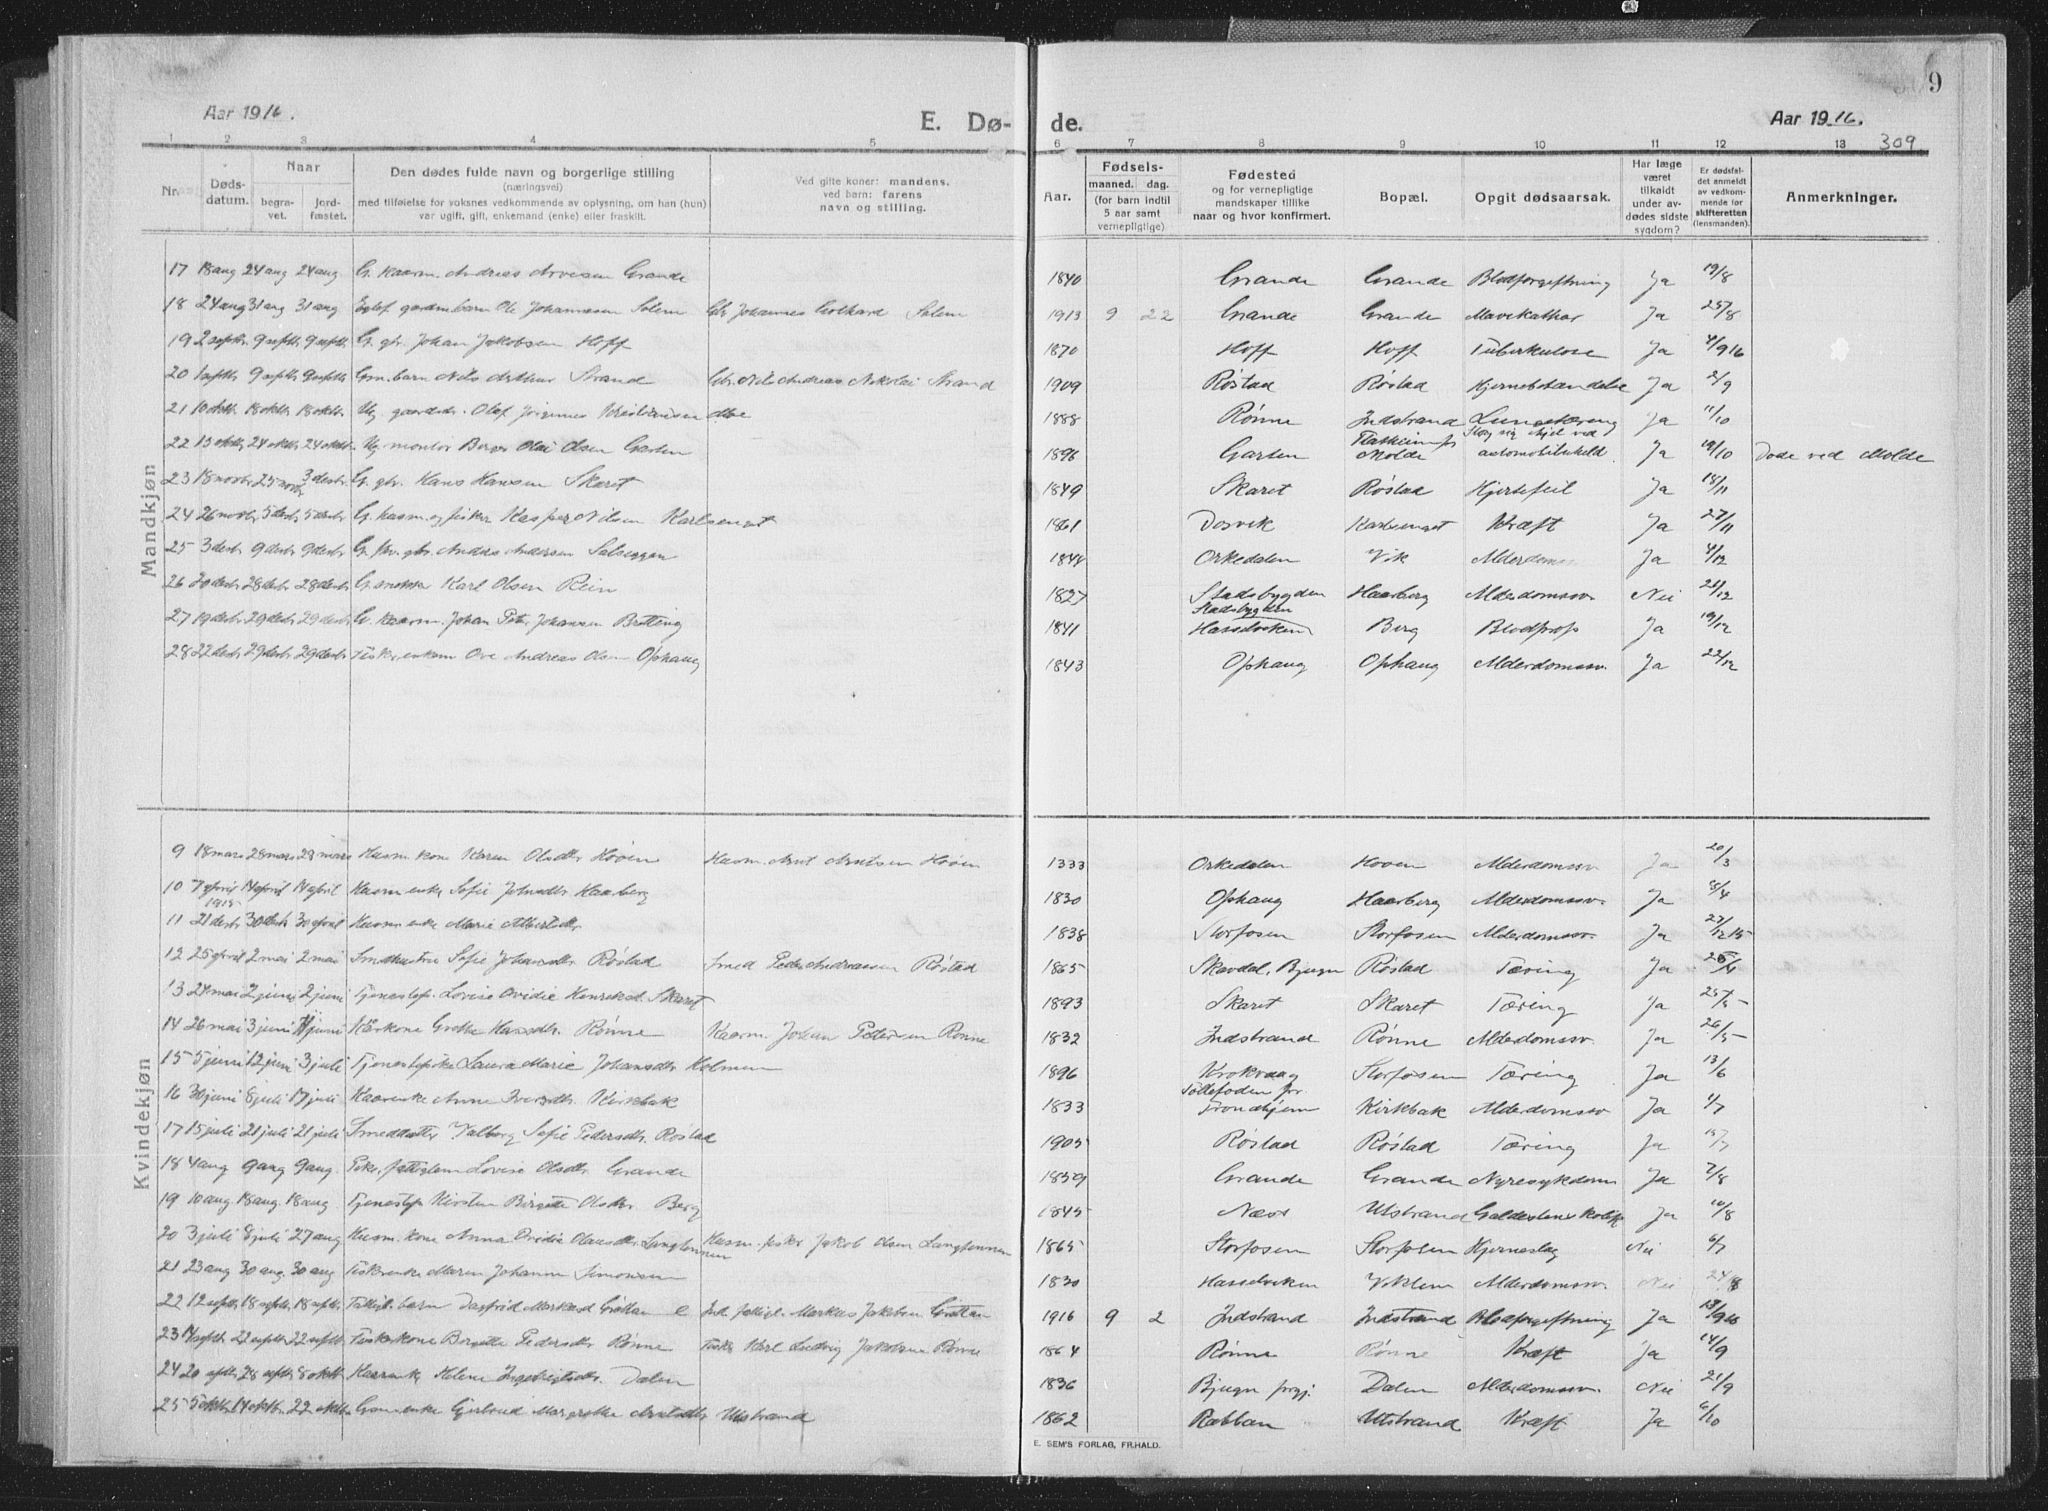 9
Aar 1916.
E. Dø-
de.
Aar 1916.
309
1 2 3 4 5 6 7 8 9 10 11 12 13
Nr. Døds-datum. Naar begra-vet. jord-fæstet. Den dødes fulde navn og borgerlige stilling (næringsvei) med tilføielse for voksnes vedkommende av oplysning, om han (hun) var ugift, gift, enkemand (enke) eller fraskilt. Ved gifte koner: mandens. ved børn: farens navn og stilling. Aar. Fødsels- maaned. dag. (for barn indtil 5 aar samt vernepligtige) Fødested og for vernepligtige mandskaper tillike naar og hvor konfirmert. Bopæl. Opgit dødsaarsak. Har læge været tilkaldt under av-dødes sidste sygdom? Er dødsfal-det anmeldt av vedkom-mende for skifteretten (lensmanden). Anmerkninger.
Mandkjøn
17 18 aug 24 aug 24 aug G. kaarm. Andreas Arvesen Grande 1840 Grande Grande Blodforgiftning Ja 19/8
18 24 aug 31 aug 31 aug barn Ole Johannesen Solem Johannes Solem 1913 9 22 Grande Grande Mavekathar Ja 25/8
19 2 septb. 9 septb. 9 septb. G. gbr. Johan Jakobsen Hoff 1870 Hoff Hoff Tuberkulose Ja 4/9 16
20 1 septb. 9 septb. 9 septb. barn Nils Arthur Strand Gbr. Nils Andreas Nikolai Strand 1909 Røstad Røstad Hjernebetændelse Ja 2/9
21 10 oktb. 18 oktb. 18 oktb. Ug. Olaf Kristiansen 1888 Rønne Indstrand Ja 11/10
22 13 oktb. 24 oktb. 24 oktb. Ug. montør Olai Olsen Garten 1896 Garten Molde Slog sig ihjel ved automobiluheld Ja 19/10 Døde ved Molde
23 18 novb. 25 novb. 3 decb. G. gbr. Hans Hansen Skaret 1849 Skaret Røstad Hjertefeil Ja 18/11
24 26 novb. 5 decb. 5 decb. G. husm. og fisker Kasper Nilsen Karlsenget 1861 Dosvik Karlsenget Kræft Ja 27/11
25 3 decb. 9 decb. 9 decb. G. gbr. Anders Andersen 1844 Orkedalen Vik Alderdomssv. Ja 4/12
26 20 decb. 28 decb. 28 decb. G. Karl Olsen Rein 1827 Stadsbygden Haarberg Alderdomssv. Nei 21/12
27 19 decb. 29 decb. 29 decb. G. kaarm. Johan Peter Johansen Brotting 1841 Stadsbygden Hasselvicken Berg Blodprop Ja 19/12
28 22 decb. 29 decb. 29 decb. Fisker, enkem. Ove Andreas Olsen Ophaug 1843 Ophaug Ophaug Alderdomssv. Ja 22/12
Kvindekjøn
9 18 mars 28 mars 28 mars Husm. kone Karen Olsdtr. Hoven Husm. Arnt Arntsen Hoven 1833 Orkedalen Hoven Alderdomssv Ja 20/3
10 7 april 14 april 14 april Husm. enke Sofie Johnsdtr. Haarberg 1830 Ophaug Haarberg Alderdomssv. Ja 15/4
1915
11 21 decb. 30 decb. 30 april Husm. enke Marie Albertsdtr. 1838 Storfosen Storfosen Alderdomssv. Ja 27/12 15
12 25 april 2 mai 2 mai Smedhustru Sofie Johansdtr. Røstad Smed Peder Andreassen Røstad 1865 Skavdal, Bjugn Røstad Tæring Ja 28/4
13 24 mai 2 juni 2 juni Tjenestep. Lovise Ovidie Henriksd. Skaret 1893 Skaret Skaret Tæring Ja 25/5
14 26 mai 3 juni juni Kårkone Grethe Hansdtr. Rønne Kaarm. Johan Petersen Rønne 1832 Indstrand Rønne Alderdomssv. Ja 26/5
15 5 juni 12 juni 3 juli Tjenestepike Laura Marie Johansdtr. Holmen 1896 Krokvaag Storfosen Tæring Ja 13/6
16 30 juni 8 juli 17 juli Kaarenke Anne Iversdtr. Kirkbak 1833 Trondhjem Kirkbak Alderdomssv Ja 1/7
17 15 juli 21 juli 21 juli Smeddatter Valborg Sofie Pedersdtr. Røstad 1905 Røstad Røstad Tæring Ja 15/7
18 4 aug 9 aug 9 aug. Lovise Olsdtr. Grande 1839 Grande Grande Nyresykdom Ja 7/8
19 10 aug 18 aug. 18 aug. Tjenestep. Kirsten Birgitte Olsdtr. Berg 1845 Næss Utstrand Galdestenskolik Ja 10/8
20 3 juli 8 juli 27 aug Husm. kone Anna Ovidie Olausdtr. Langtennen Husm. fisker Jakob Olsen Langtennen 1865 Storfosen Storfosen Hjerneslag Nei 6/7
21 23 aug 30 aug. 30 aug Fiskerenke Maren Johanne Simonsen 1830 Hasselvicken Viklem Alderdomssv. Nei 24/8
22 12 septb. 18 septb. 18 septb. Fattigl. barn Dagfrid Markusd. Grøttan Ind. fattigl. Markus Jakobsen Grøttan 1916 9 2 Indstrand Indstrand Blodforgiftning Ja 13/9 16
23 14 septb. 22 septb. 22 septb. Fiskerkone Bergitte Pedersdtr. Rønne Fisker Karl Ludvig Jakobsen Rønne 1864 Rønne Rønne Kræft Ja 14/9
24 20 septb. 28 septb. 8 oktb. Kaarenke Helene Ingebrigtsdtr. Dalen 1836 Bjugn prgj. Dalen Alderdomssv. Nei 21/9
25 5 oktb. 14 oktb. 22 oktb. enke Gjertrud Margrethe Arntsdtr. Utstrand 1862 Rabban Utstrand Kræft Ja 6/10
E. SEM'S FORLAG, FR.HALD.